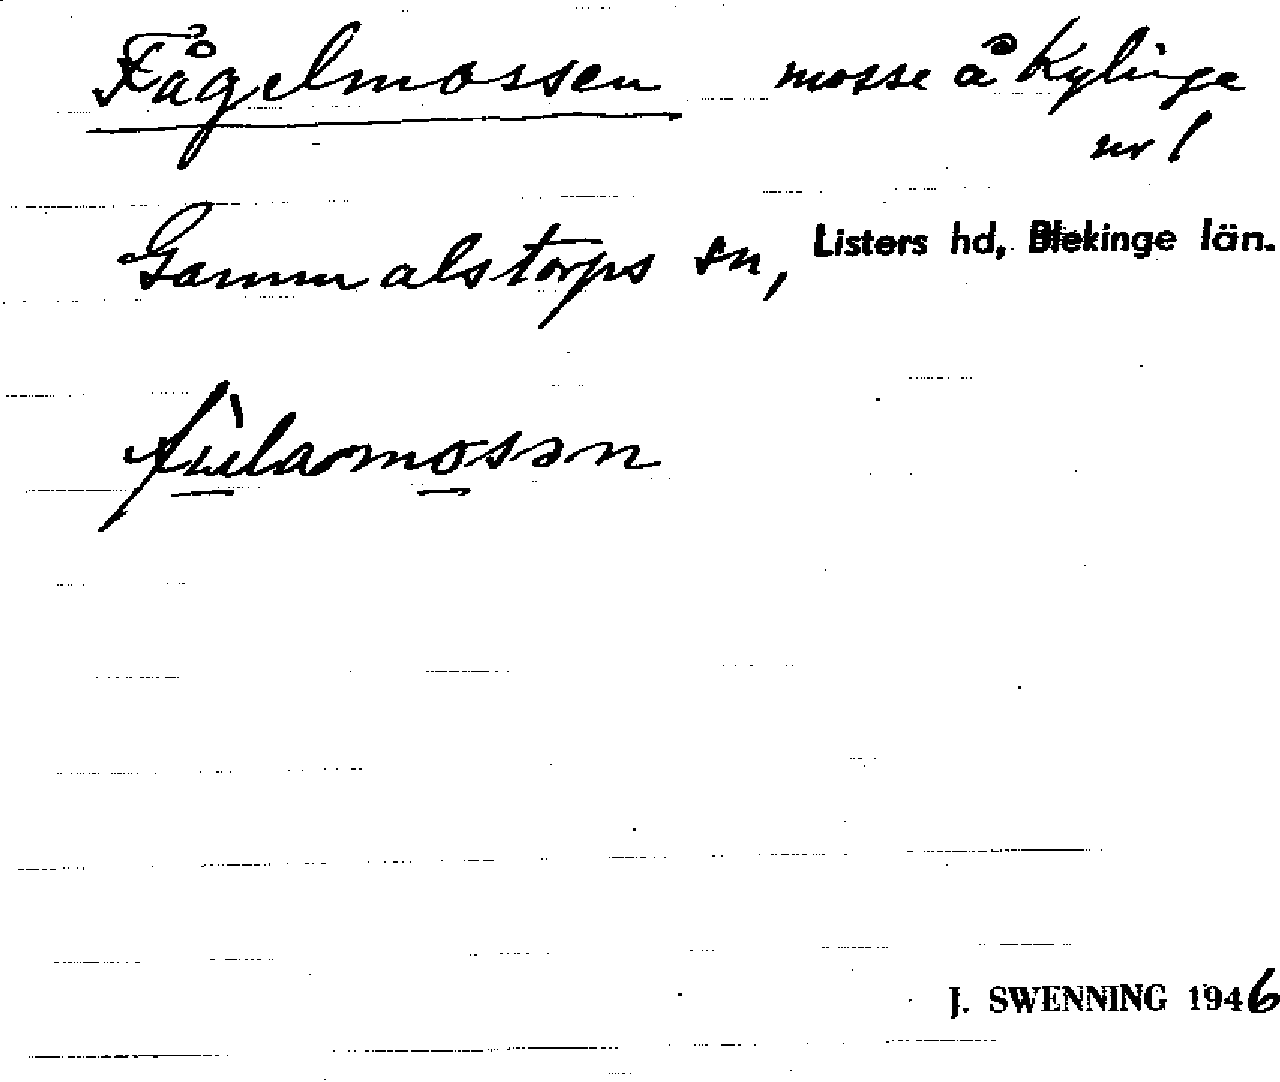 Fågelmossen mosse å Kylinge
nr 1
Gammalstorps sn, Listers hd, Blekinge län.
J. SWENNING 1946